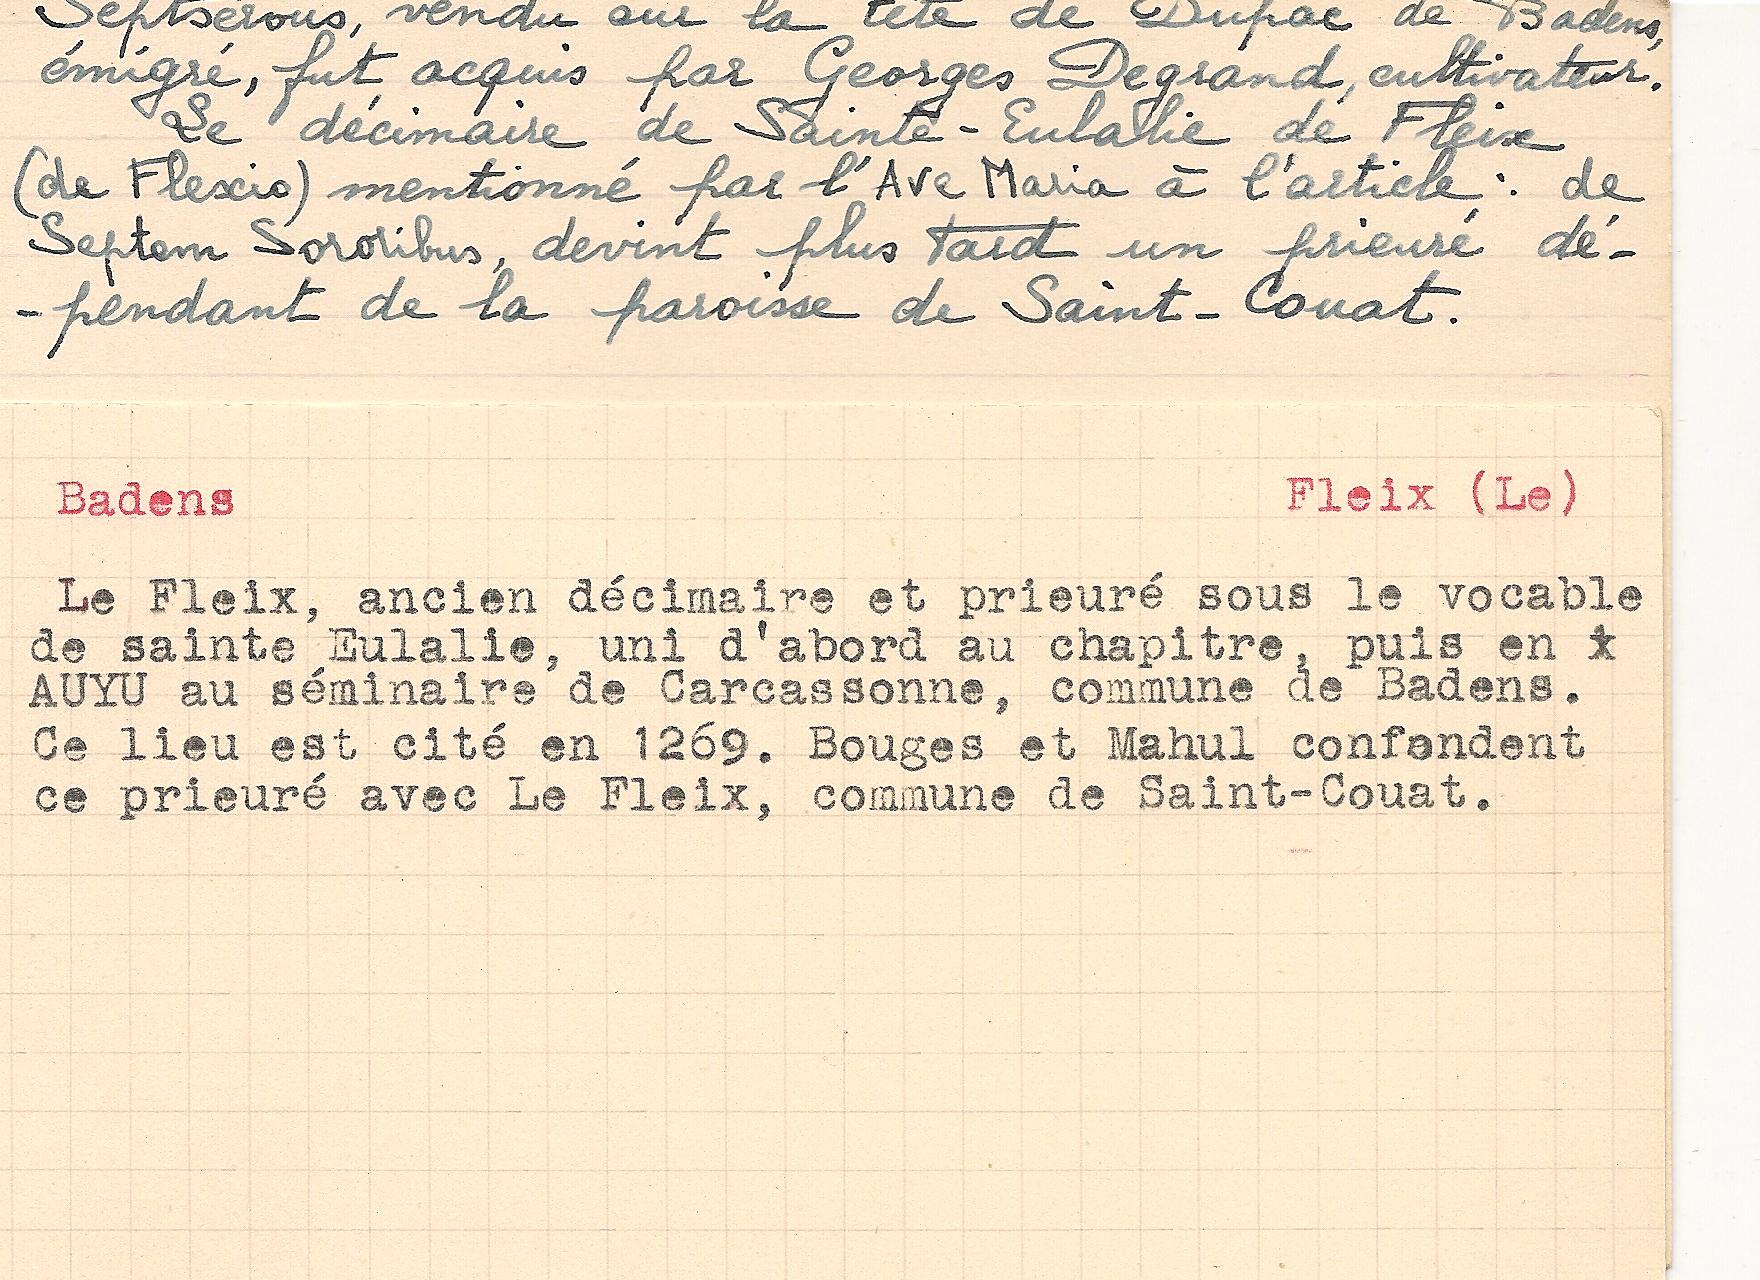 Septserous, vendu sur la tête de Dupac de Badens,
émigré, fut acquis par Georges Degrand, cultivateur.
Le décimaire de Sainte-Eulalie de Fleix
(de Flexio) mentionné par l'Ave Maria à l'article : de
Septem Sororibus, devint plus tard un prieuré dé-
-pendant de la paroisse de Saint-Couat.
Badens Fleix (Le)
Le Fleix, ancien décimaire et prieuré sous le vocable
de sainte Eulalie, uni d'abord au chapitre, puis en x
AUYU au séminaire de Carcassonne, commune de Badens.
Ce lieu est cité en 1269. Bouges et Mahul confondent
ce prieuré avec Le Fleix, commune de Saint-Couat.